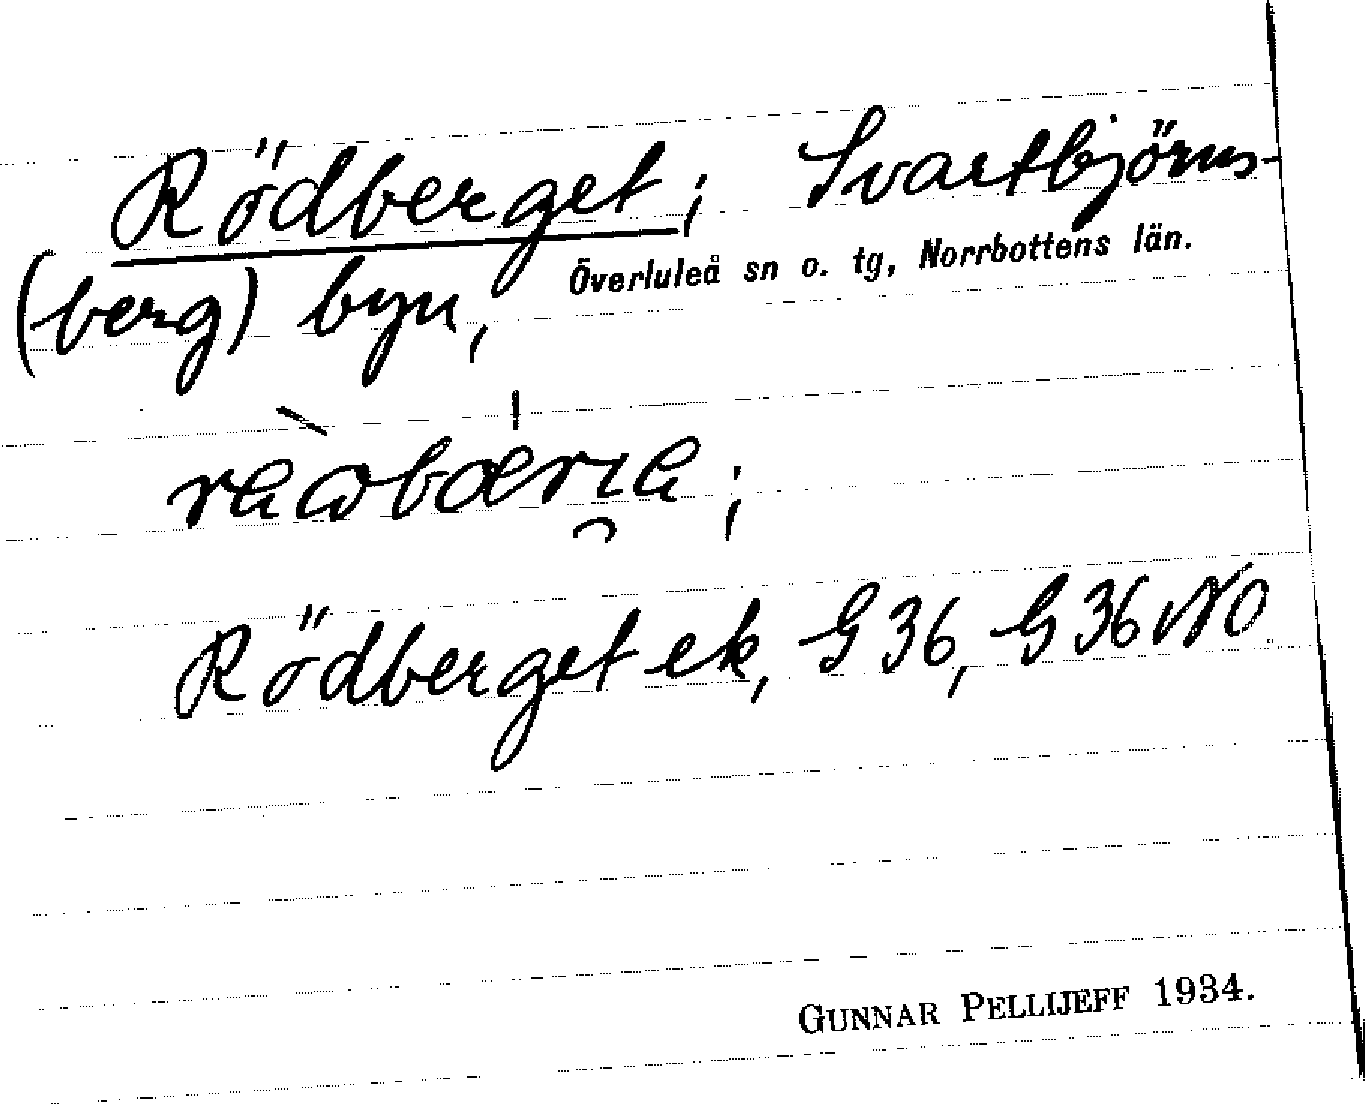 Rödberget; Svartbjörns-
(berg) byn,
Överluleå sn o. tg, Norrbottens län.
Rödberget ek, G 36, G 36 NO
GUNNAR PELLIJEFF 1934.